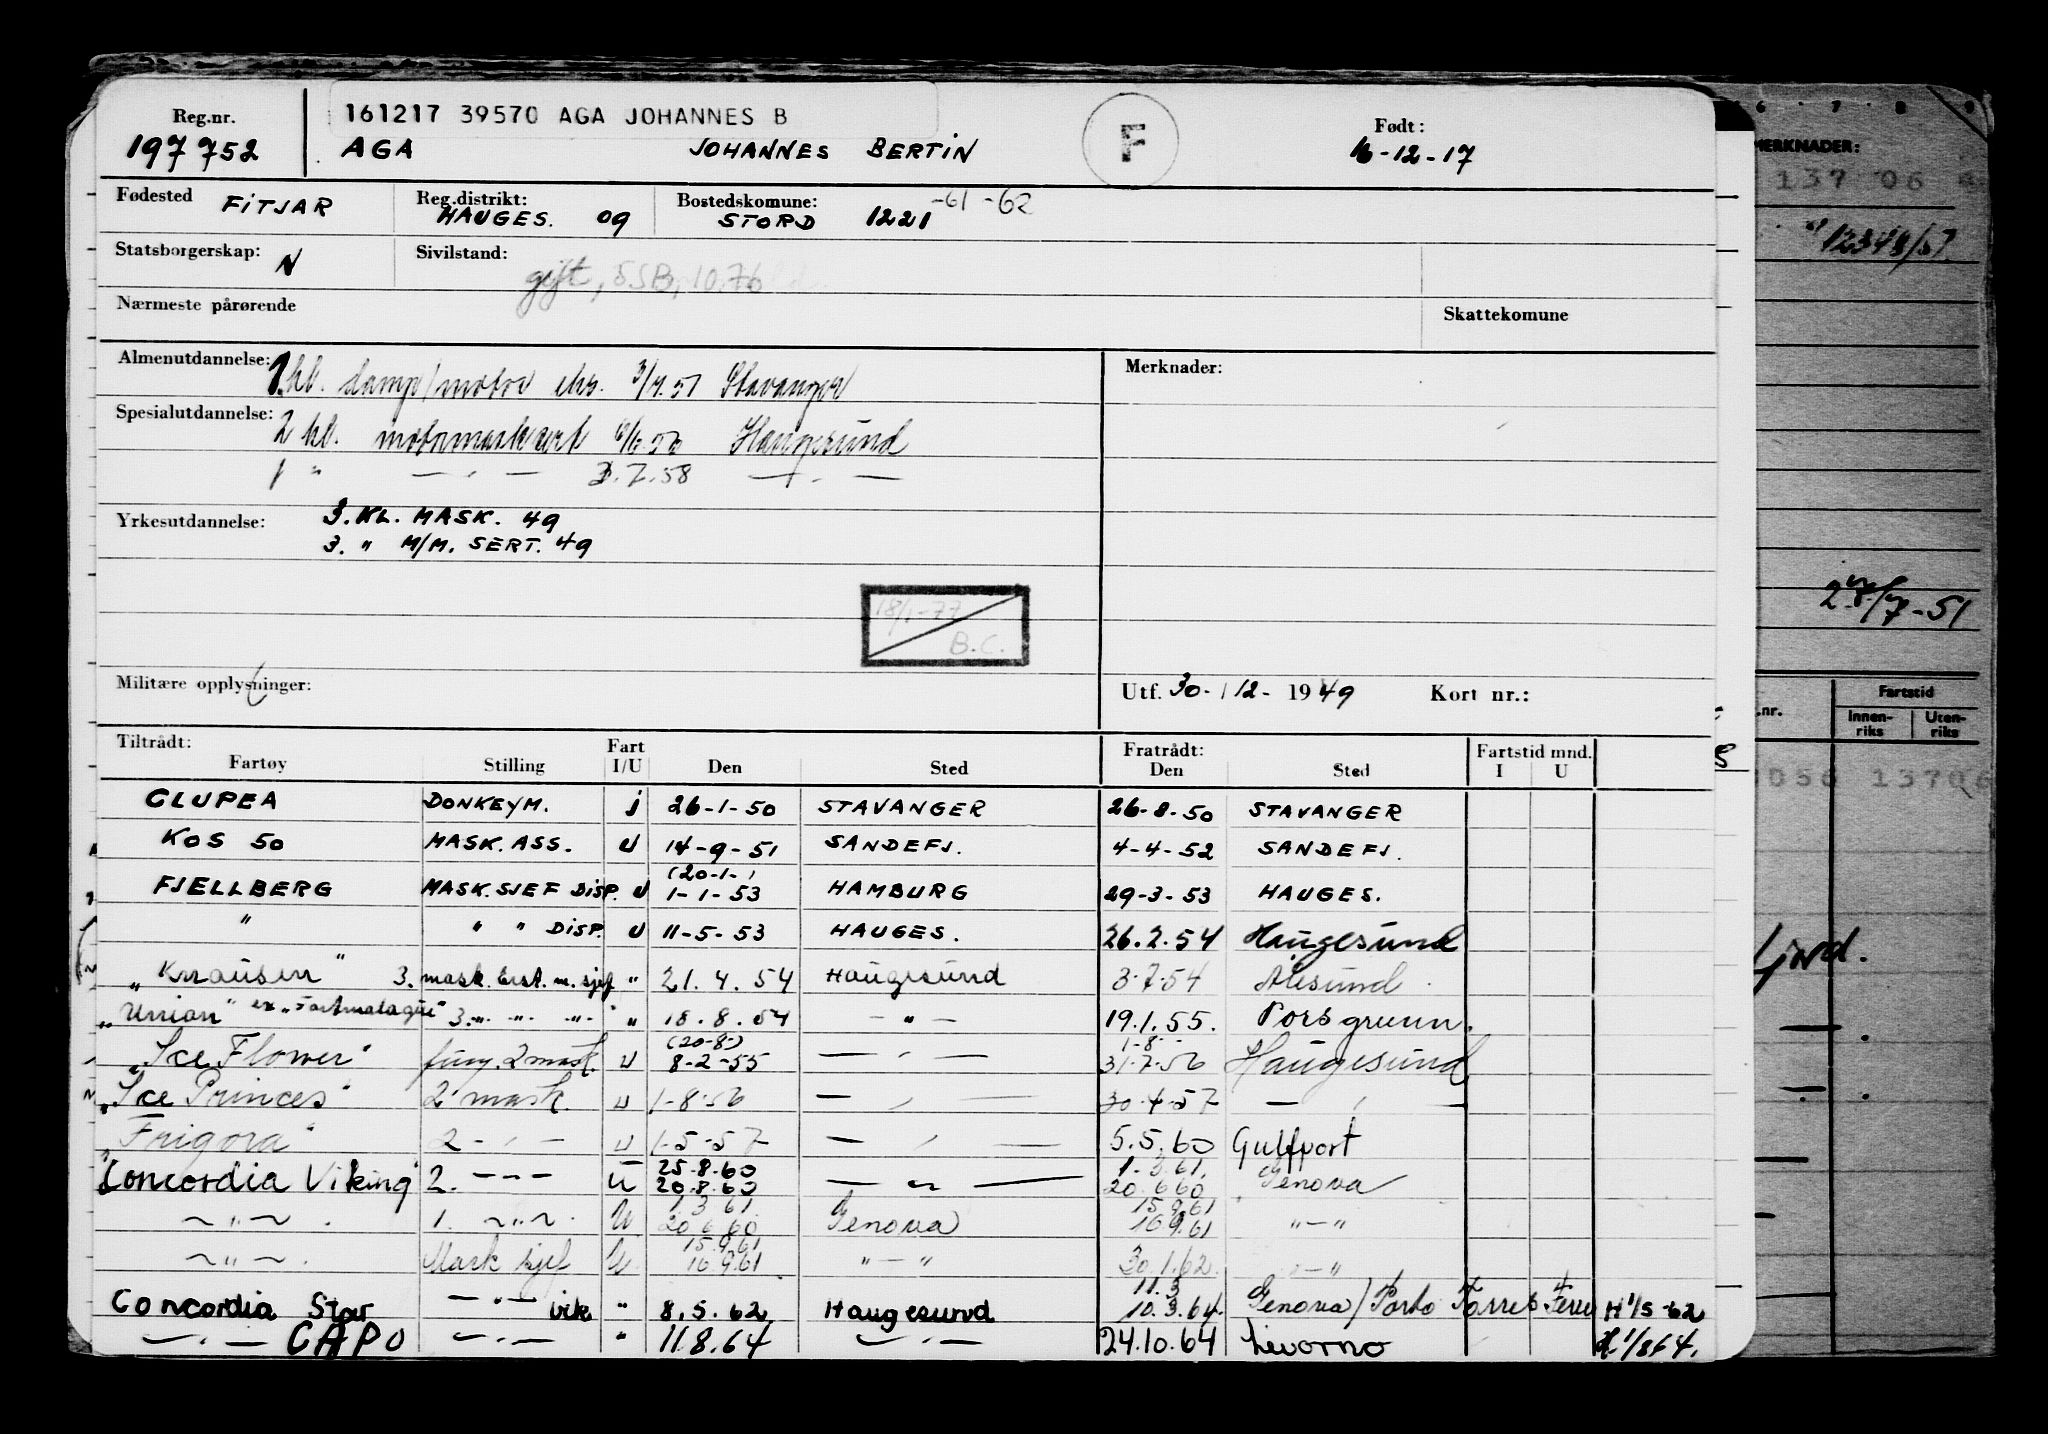 Reg.nr. 197 752
161217 39570 AGA JOHANNES B
AGA JOHANNES BERTIN
F
Født: 16-12-17
Fødested FITJAR Reg.distrikt: HAUGES. 09 Bostedskomune: STORD 1221 -61 -62
Statsborgerskap: N Sivilstand: gift,
Nærmeste pårørende Skattekomune
Almenutdannelse: 1 kl. damp/motor eks. 3/7.51 Stavanger
Merknader:
Spesialutdannelse: 2 kl. motormask sert 6/6.56 Haugesund
1 " — " — 3.7.58 — " —
Yrkesutdannelse: 3. KL. MASK. 49
3. " M/M. SERT. 49
18/1-77
B.C.
Militære opplysninger: Utf. 30-12-1949 Kort nr.:
Tiltrådt: Fratrådt:
Fartøy Stilling Fart I/U Den Sted Den Sted Fartstid mnd. I U
CLUPEA DONKEYM. i 26-1-50 STAVANGER 26-8-50 STAVANGER
KOS 50 MASK. ASS. U 14-9-51 SANDEFJ. 4-4-52 SANDEFJ.
(20-1-)
FJELLBERG MASK. SJEF DISP. U 1-1-53 HAMBURG 29-3-53 HAUGES.
" " " DISP. U 11-5-53 HAUGES. 26.2.54 Haugesund
"Knausen" 3. mask. best. m. sjef " 21.4.54 Haugesund 3-7-54 Ålesund
"Union" ex "Fartmalagut" 3. " " " " 18.8.54 — " — 19.1.55. Porsgrunn.
(20-8-) 1-8-
"Ice Flower" fung. 2 mask. U 8-2-55 — " — 31-7-56 Haugesund
"Ice Princes" 2 mask. U 1-8-56 — " — 30-4-57 — " —
"Frigora" 2 — " — U 1-5-57 — " — 5.5.60 Gulfport
25.8.60 1.3.61.
"Concordia Viking" 2. — " — U 20.8.60 — " — 20.6.60 Genova
1.3.61 15.9.61
— " — 1. — " — U 20.6.60 Genova 16.9.61 " — "
15.9.61
— " — Mask sjef U 16.9.61 " — " 30.1.62. " — "
11.3
Concordia Star — " — vik " 8.5.62 Haugesund 10.3.64. Genova / Porto Torres Ferie H 1/5-62
— " — CAPO — " — " 11.8.64 — " — 24.10.64 Livorno H 1/8 64.
6 7 8 9
MERKNADER:
137 06
12348/51
7-51
.nr. Fartstid
Innen-riks Uten-riks
050 13706
fjord.